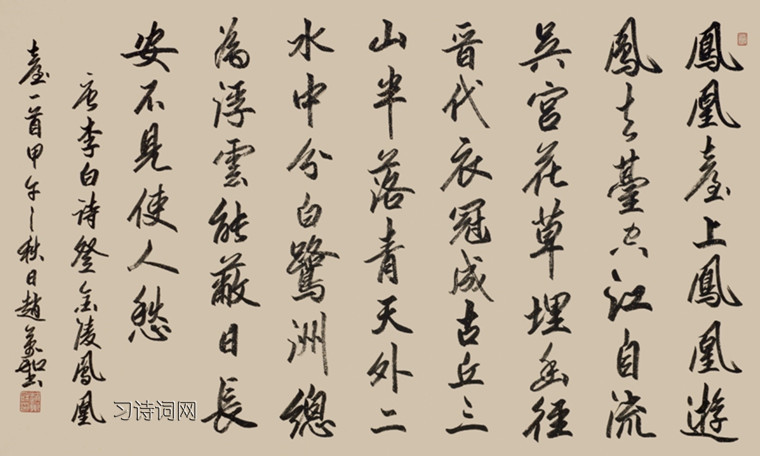 鳳凰臺上鳳凰遊
鳳去臺空江自流
吳宮花草埋幽徑
晋代衣冠成古丘三
山半落青天外二
水中分白鷺洲總
為浮雲能蔽日長
安不見使人愁
唐李白诗登金陵鳳凰
臺一首甲午之秋日趙
习诗词网